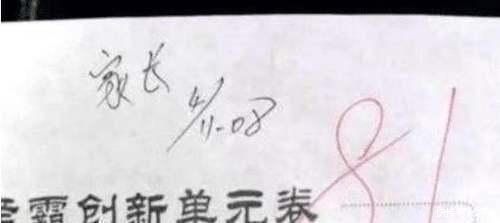 家长
4/11-08
81
霸创新单元卷